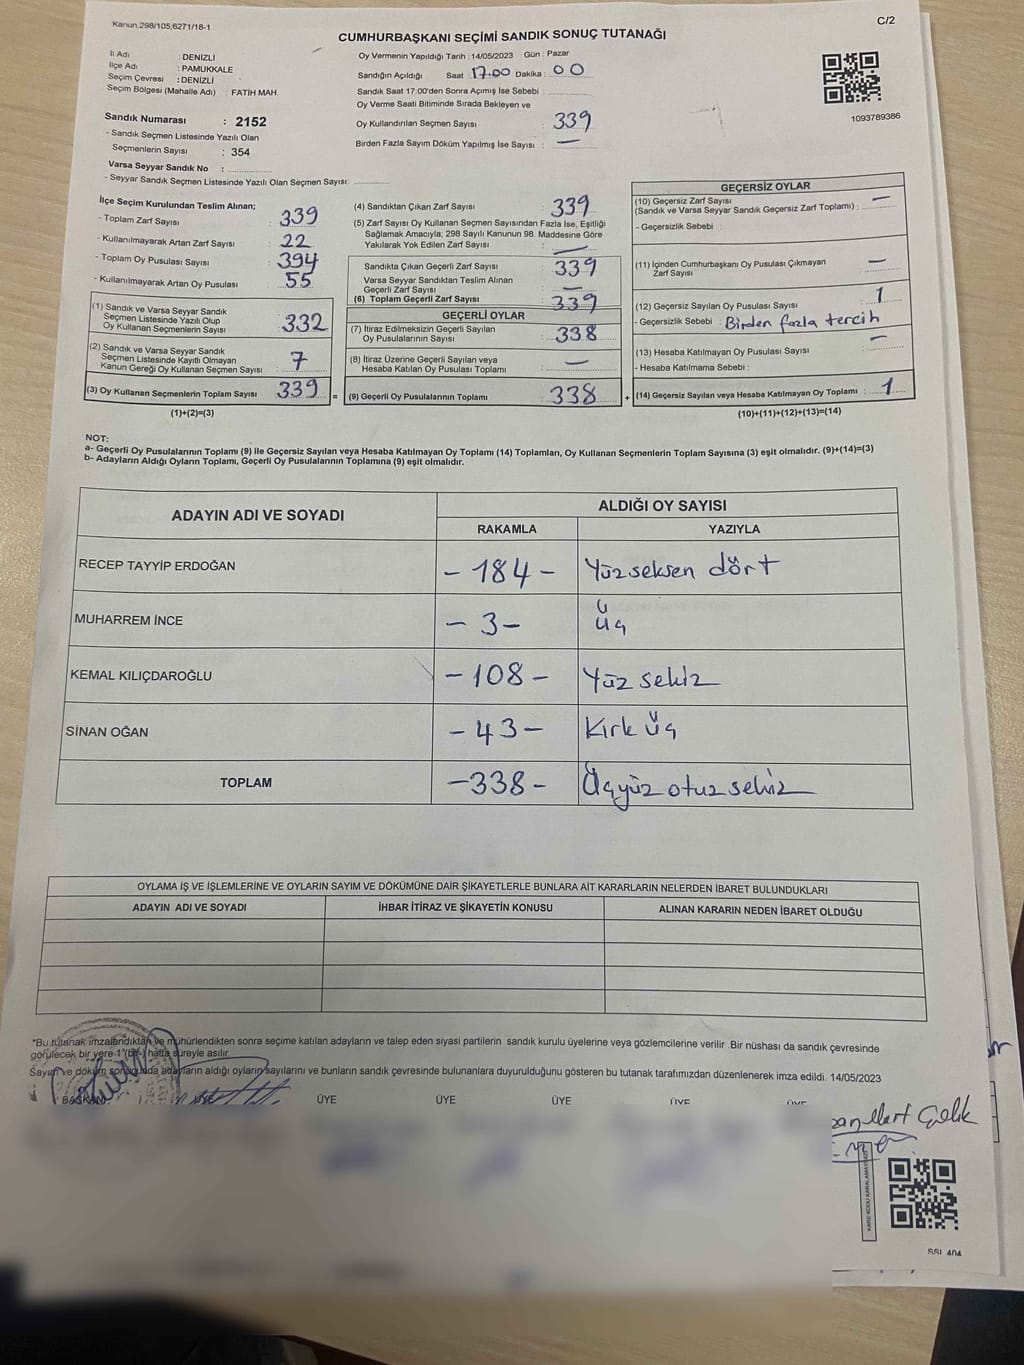 Kanun.298/105;6271/18-1
C/2
CUMHURBAŞKANI SEÇİMİ SANDIK SONUÇ TUTANAĞI
İl Adı : DENİZLİ
İlçe Adı : PAMUKKALE
Seçim Çevresi : DENİZLİ
Seçim Bölgesi (Mahalle Adı) : FATİH MAH.
Sandık Numarası : 2152
- Sandık Seçmen Listesinde Yazılı Olan
Seçmenlerin Sayısı : 354
Varsa Seyyar Sandık No :
- Seyyar Sandık Seçmen Listesinde Yazılı Olan Seçmen Sayısı:
Oy Vermenin Yapıldığı Tarih : 14/05/2023 Gün : Pazar
Sandığın Açıldığı Saat : 17.00 Dakika : 00
Sandık Saat 17:00'den Sonra Açımış İse Sebebi :
Oy Verme Saati Bitiminde Sırada Bekleyen ve
Oy Kullandırılan Seçmen Sayısı : 339
Birden Fazla Sayım Döküm Yapılmış İse Sayısı : —
1093789386
İlçe Seçim Kurulundan Teslim Alınan;
- Toplam Zarf Sayısı : 339
- Kullanılmayarak Artan Zarf Sayısı : 22
- Toplam Oy Pusulası Sayısı : 394
- Kullanılmayarak Artan Oy Pusulası : 55
(1) Sandık ve Varsa Seyyar Sandık
Seçmen Listesinde Yazılı Olup
Oy Kullanan Seçmenlerin Sayısı : 332
(2) Sandık ve Varsa Seyyar Sandık
Seçmen Listesinde Kayıtlı Olmayan
Kanun Gereği Oy Kullanan Seçmen Sayısı : 7
(3) Oy Kullanan Seçmenlerin Toplam Sayısı : 339 =
(1)+(2)=(3)
(4) Sandıktan Çıkan Zarf Sayısı : 339
(5) Zarf Sayısı Oy Kullanan Seçmen Sayısından Fazla İse, Eşitliği
Sağlamak Amacıyla; 298 Sayılı Kanunun 98. Maddesine Göre
Yakılarak Yok Edilen Zarf Sayısı : —
Sandıkta Çıkan Geçerli Zarf Sayısı : 339
Varsa Seyyar Sandıktan Teslim Alınan
Geçerli Zarf Sayısı : —
(6) Toplam Geçerli Zarf Sayısı : 339
GEÇERLİ OYLAR
(7) İtiraz Edilmeksizin Geçerli Sayılan
Oy Pusulalarının Sayısı : 338
(8) İtiraz Üzerine Geçerli Sayılan veya
Hesaba Katılan Oy Pusulası Toplamı : —
(9) Geçerli Oy Pusulalarının Toplamı : 338 +
GEÇERSİZ OYLAR
(10) Geçersiz Zarf Sayısı
(Sandık ve Varsa Seyyar Sandık Geçersiz Zarf Toplamı) : —
- Geçersizlik Sebebi :
(11) İçinden Cumhurbaşkanı Oy Pusulası Çıkmayan
Zarf Sayısı : —
(12) Geçersiz Sayılan Oy Pusulası Sayısı : 1
- Geçersizlik Sebebi : Birden fazla tercih
(13) Hesaba Katılmayan Oy Pusulası Sayısı : —
- Hesaba Katılmama Sebebi :
(14) Geçersiz Sayılan veya Hesaba Katılmayan Oy Toplamı : 1
(10)+(11)+(12)+(13)=(14)
NOT:
a- Geçerli Oy Pusulalarının Toplamı (9) ile Geçersiz Sayılan veya Hesaba Katılmayan Oy Toplamı (14) Toplamları, Oy Kullanan Seçmenlerin Toplam Sayısına (3) eşit olmalıdır. (9)+(14)=(3)
b- Adayların Aldığı Oyların Toplamı, Geçerli Oy Pusulalarının Toplamına (9) eşit olmalıdır.
ADAYIN ADI VE SOYADI ALDIĞI OY SAYISI
RAKAMLA YAZIYLA
RECEP TAYYİP ERDOĞAN - 184 - Yüzseksen dört
MUHARREM İNCE - 3 - Üç
KEMAL KILIÇDAROĞLU - 108 - Yüz sekiz
SİNAN OĞAN - 43 - Kırk üç
TOPLAM - 338 - Üçyüz otuz sekiz
OYLAMA İŞ VE İŞLEMLERİNE VE OYLARIN SAYIM VE DÖKÜMÜNE DAİR ŞİKAYETLERLE BUNLARA AİT KARARLARIN NELERDEN İBARET BULUNDUKLARI
ADAYIN ADI VE SOYADI İHBAR İTİRAZ VE ŞİKAYETİN KONUSU ALINAN KARARIN NEDEN İBARET OLDUĞU
"Bu tutanak imzalandıktan ve mühürlendikten sonra seçime katılan adayların ve talep eden siyasi partilerin sandık kurulu üyelerine veya gözlemcilerine verilir .Bir nüshası da sandık çevresinde
görülecek bir yere 1 (bir) hafta süreyle asılır.
Sayım ve döküm sonucunda adayların aldığı oyların sayılarını ve bunların sandık çevresinde bulunanlara duyurulduğunu gösteren bu tutanak tarafımızdan düzenlenerek imza edildi. 14/05/2023
BAŞKAN ÜYE ÜYE ÜYE ÜYE ÜYE ÜYE
Mert Çelik